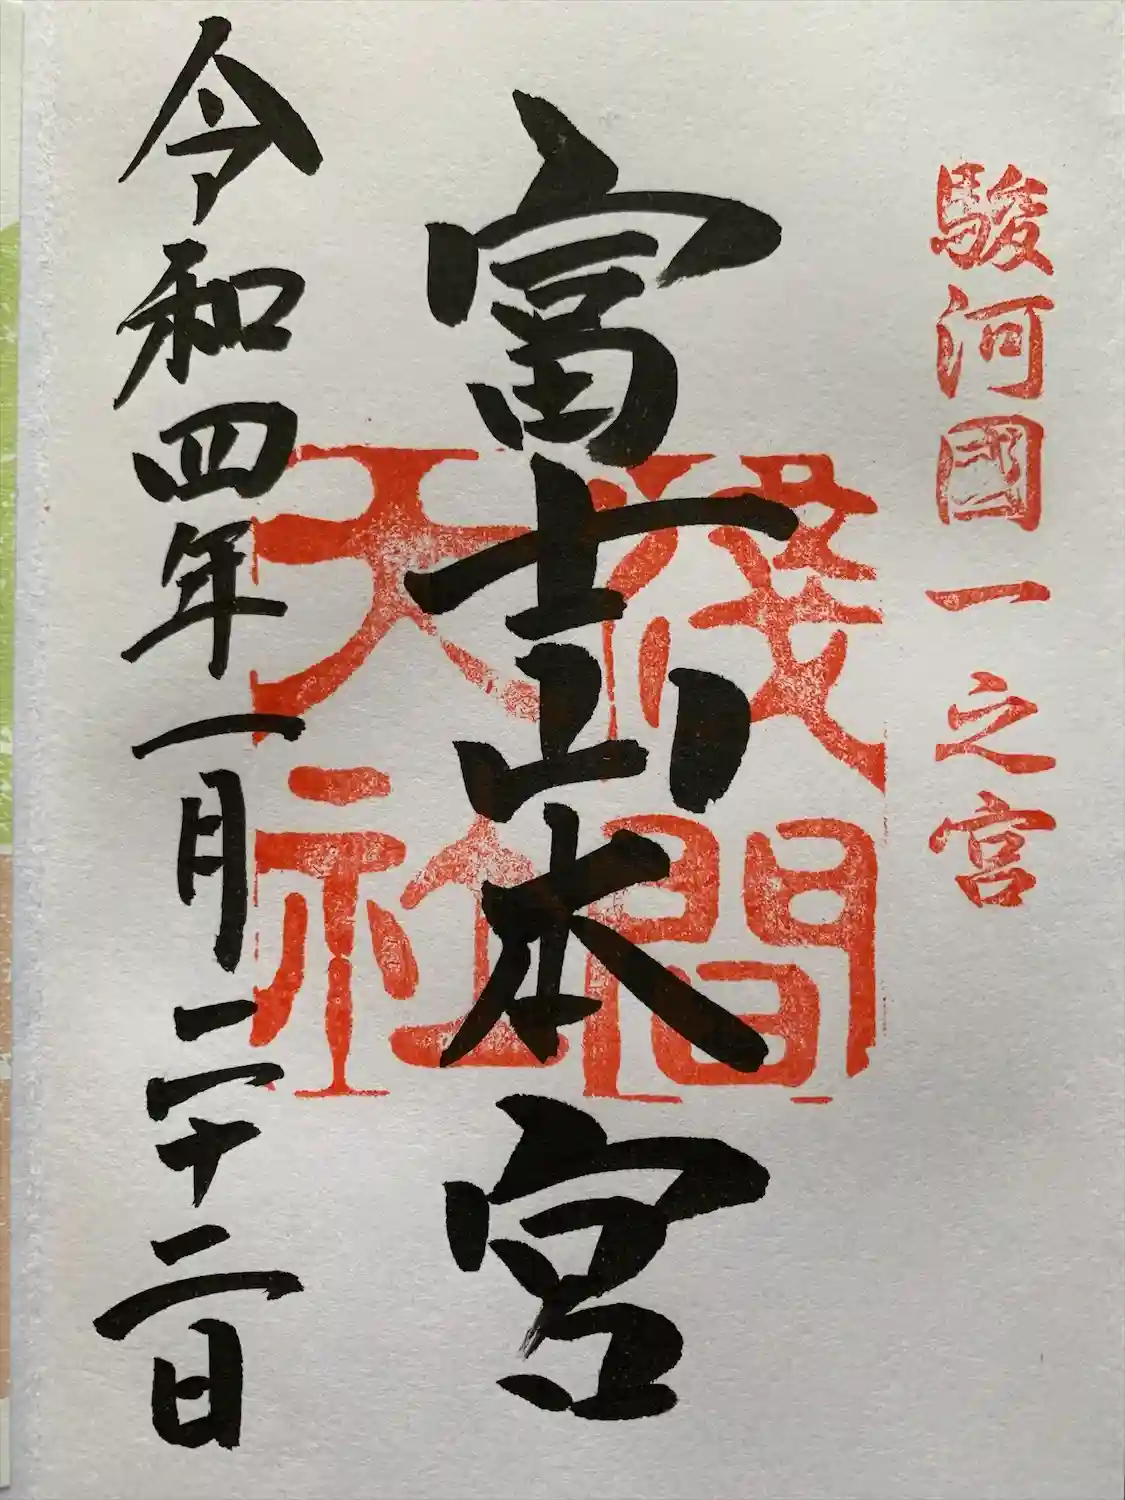 駿河國一之宮
富士山本宮
淺間大社
令和四年一月二十二日